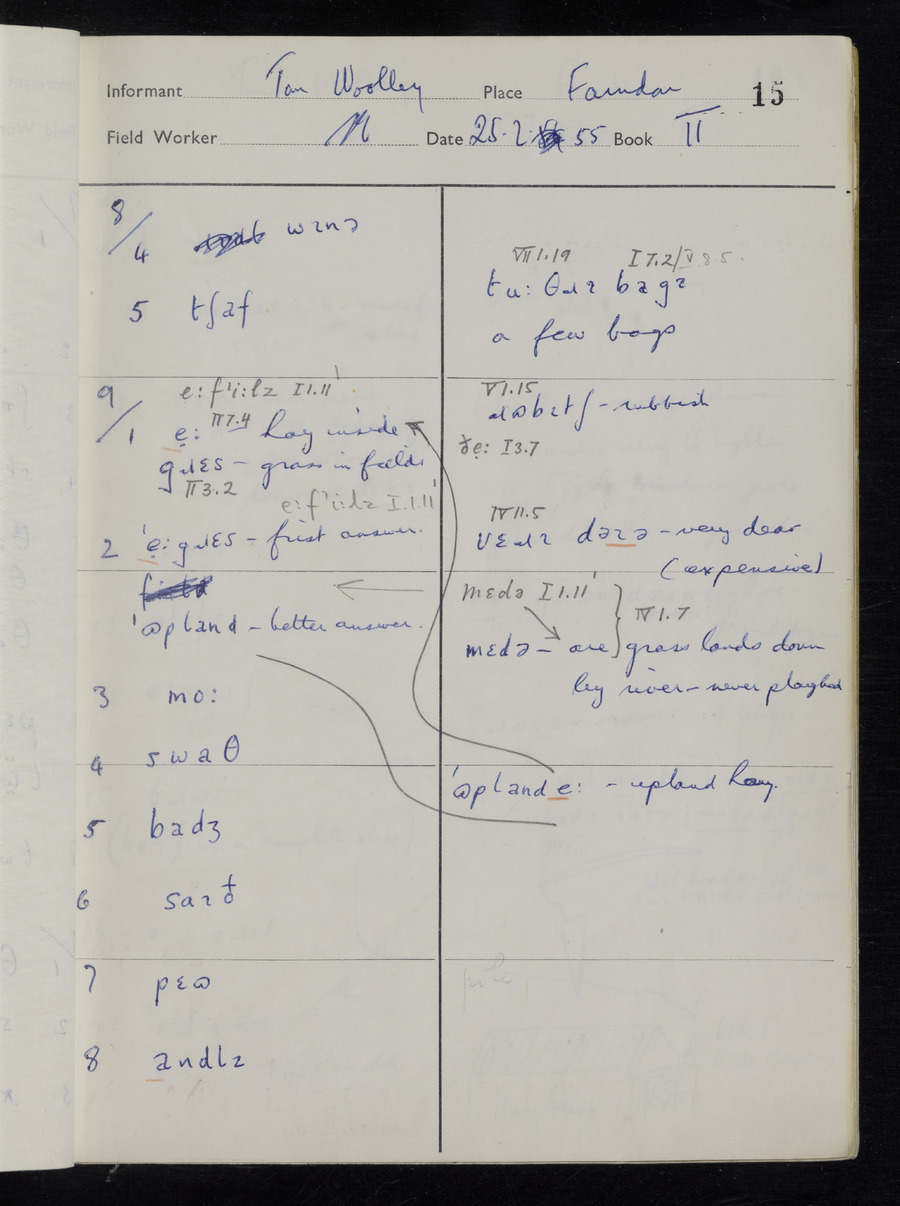 Informant Tom Woolley Place Farndon 15
Field Worker Date 25.2. 55 Book II
8/
4 wɪnə
VII 1.19 I 7.2/V 8 5.
tu: θɹɪ bagz
5 tʃaf
a few bags
9/
e:f'i:lz I 1.11'
V 1.15
ɹɷbɪʃ - rubbish
1 ẹ: II 7.4 hay inside
ẹ: I 3.7
gɹɛs - grass in fields
II 3.2
e:f'i:lz I.1.11'
IV 11.5
2 'ẹ:gɹɛs - first answer.
vɛɹɪ dəɪə - very dear
(expensive)
'ɷpland - better answer.
mɛdə I 1.11'
IV 1.7
mɛdə - are grass lands down
by river - never ploughed
3 mo:
4 swaθ
'ɷplande: - upland hay.
5 badʒ
6 saɪð
7 pɛɷ
pole
8 andlz